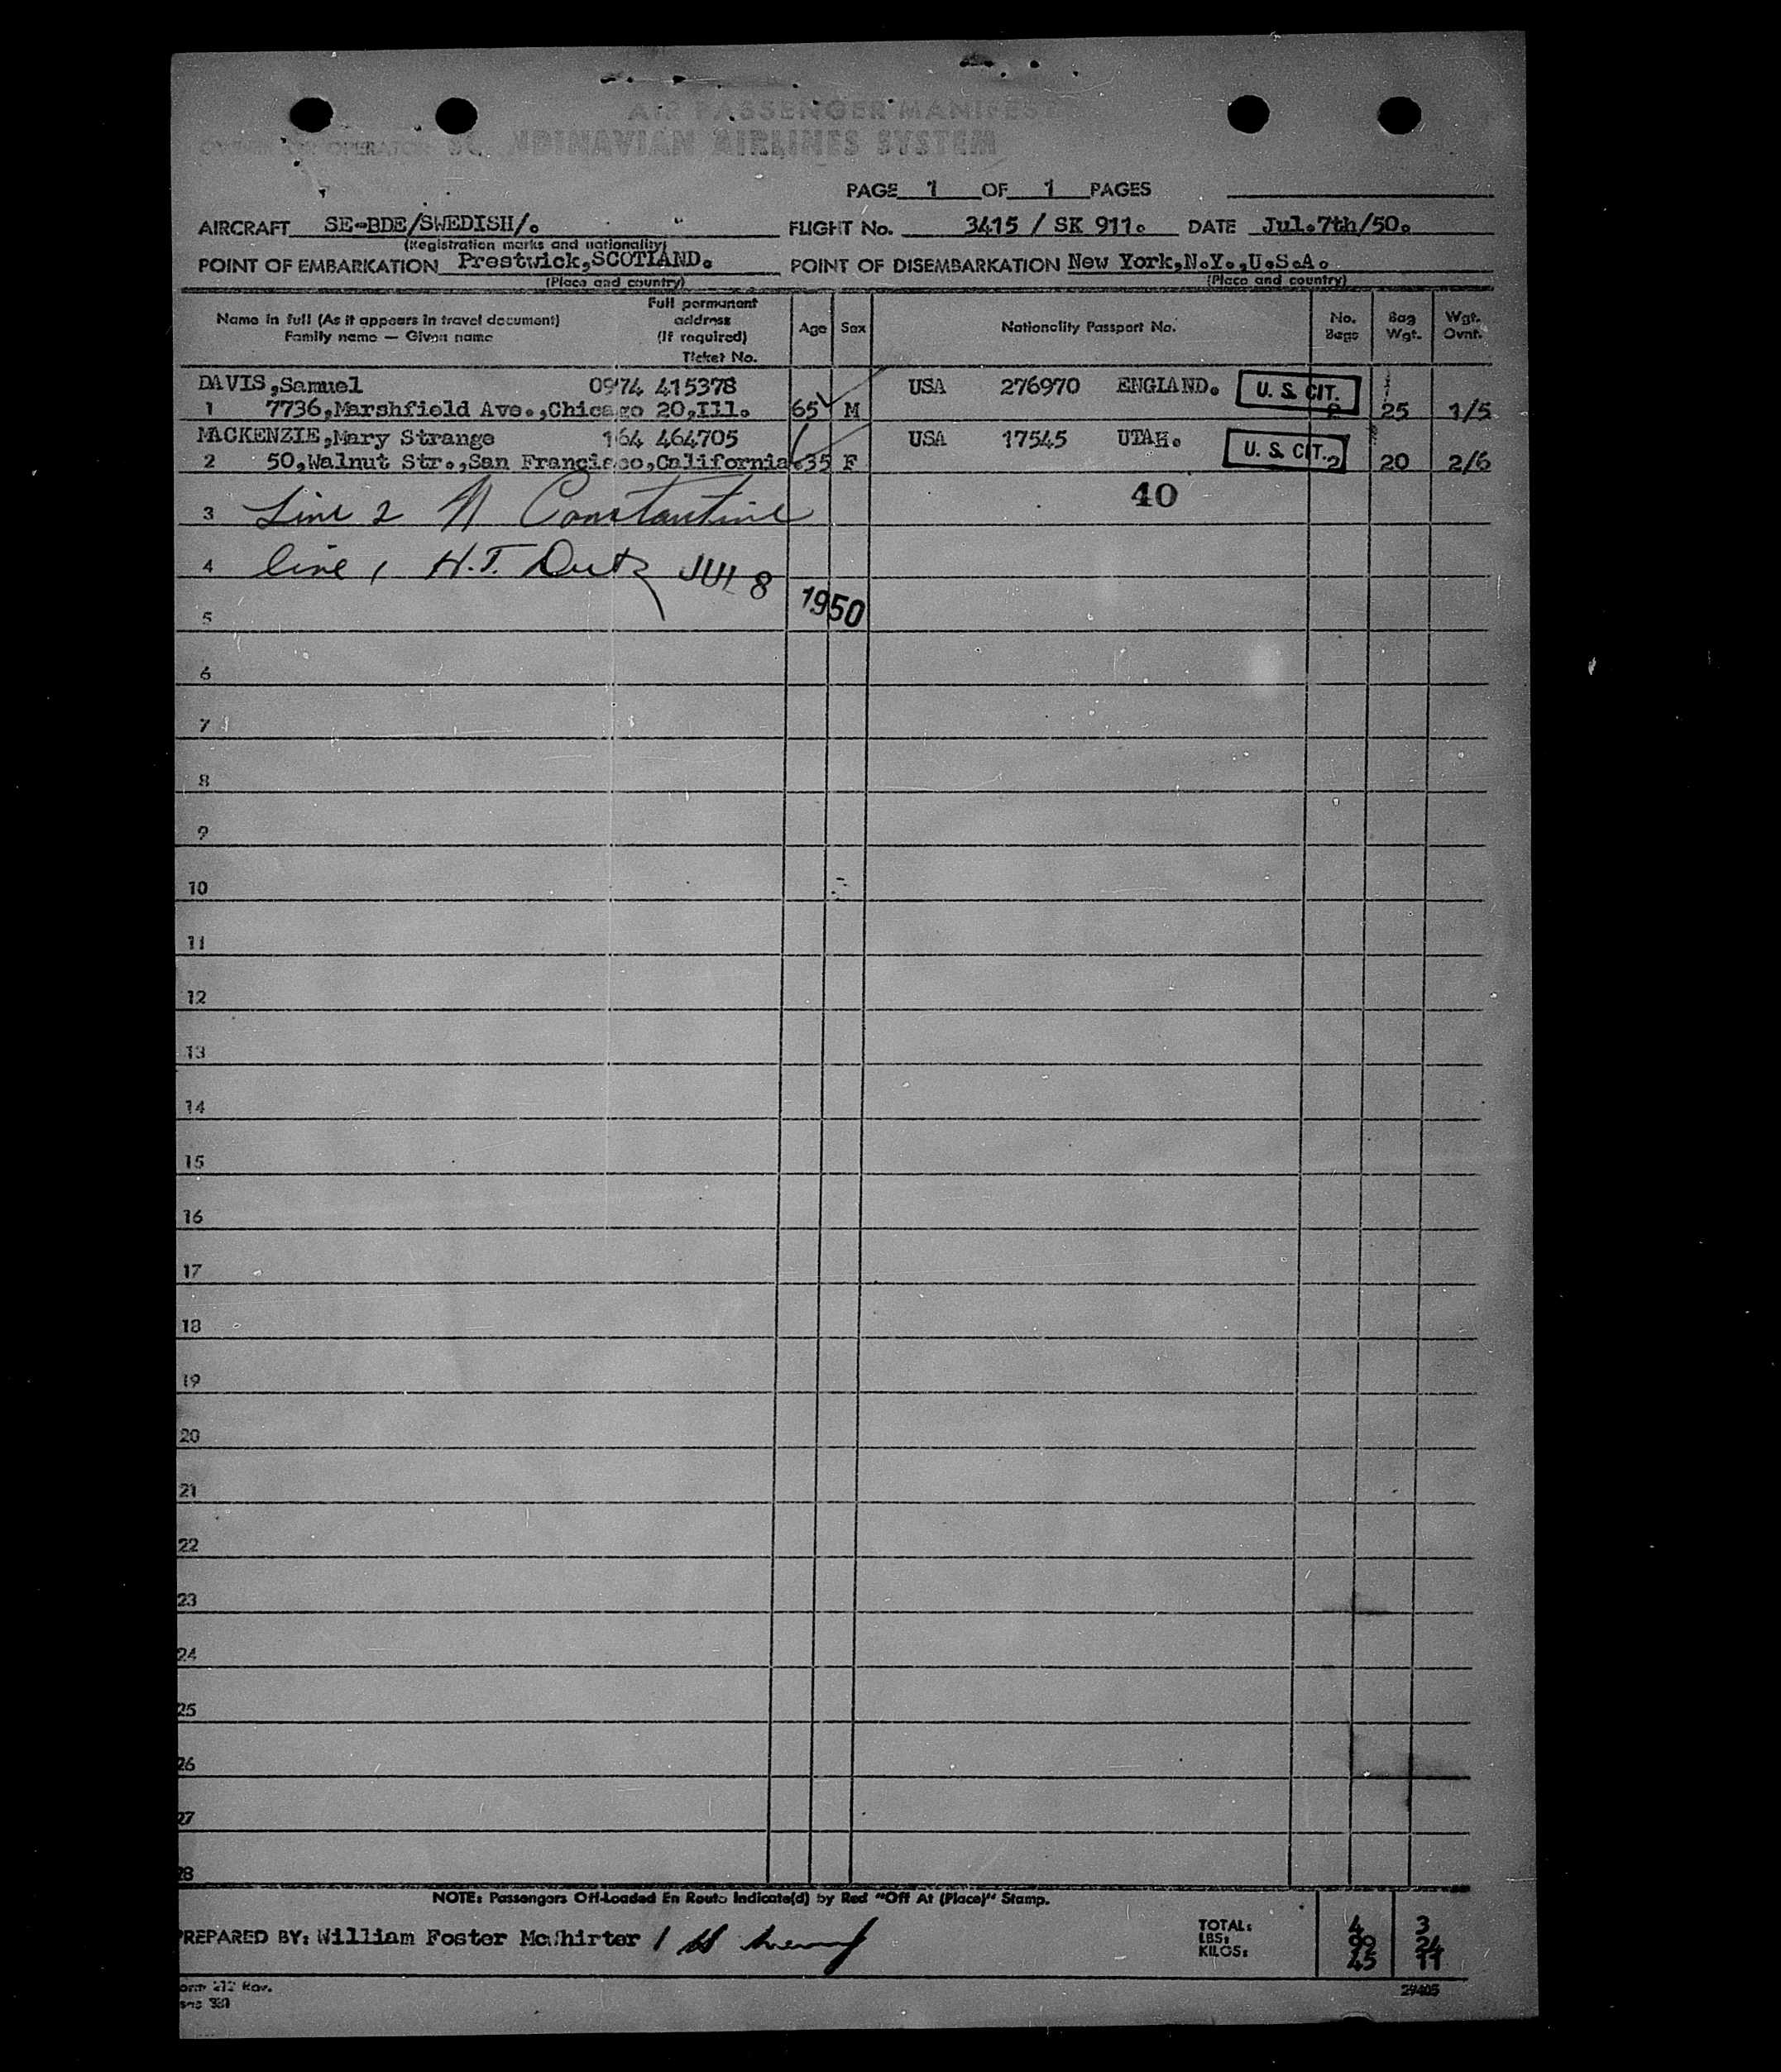 AIR PASSENGER MANIFEST
OWNER OR OPERATOR SCANDINAVIAN AIRLINES SYSTEM
PAGE 1 OF 1 PAGES
AIRCRAFT SE-BDE/SWEDISH/. FLIGHT No. 3415 / SK 911. DATE Jul.7th/50.
(Registration marks and nationality)
POINT OF EMBARKATION Prestwick,SCOTLAND. POINT OF DISEMBARKATION New York,N.Y.,U.S.A.
(Place and country) (Place and country)
Name in full (As it appears in travel document) Family name — Given name
Full permanent address (If required) Ticket No.
Age Sex Nationality Passport No. No. Bags Bag Wgt. Wgt. Ovnt.
DAVIS,Samuel 0974 415378 USA 276970 ENGLAND. U. S. CIT.
1 7736,Marshfield Ave.,Chicago 20,Ill. 65 M 2 25 1/5
MACKENZIE,Mary Strange 164 464705 USA 17545 UTAH. U. S. CIT.
2 50,Walnut Str.,San Francisco,California. 35 F 2 20 2/6
40
3 Line 2 N Constantine
4 line 1 H.T. Dutz JUL 8 1950
5
6
7
8
9
10
11
12
13
14
15
16
17
18
19
20
21
22
23
24
25
26
27
28
NOTE: Passengers Off-Loaded En Route Indicate(d) by Red "Off At (Place)" Stamp.
PREPARED BY: William Foster McWhirter /
TOTAL: 4 3
LBS: 99 24
KILOS: 45 11
Form 212 Rev.
29405